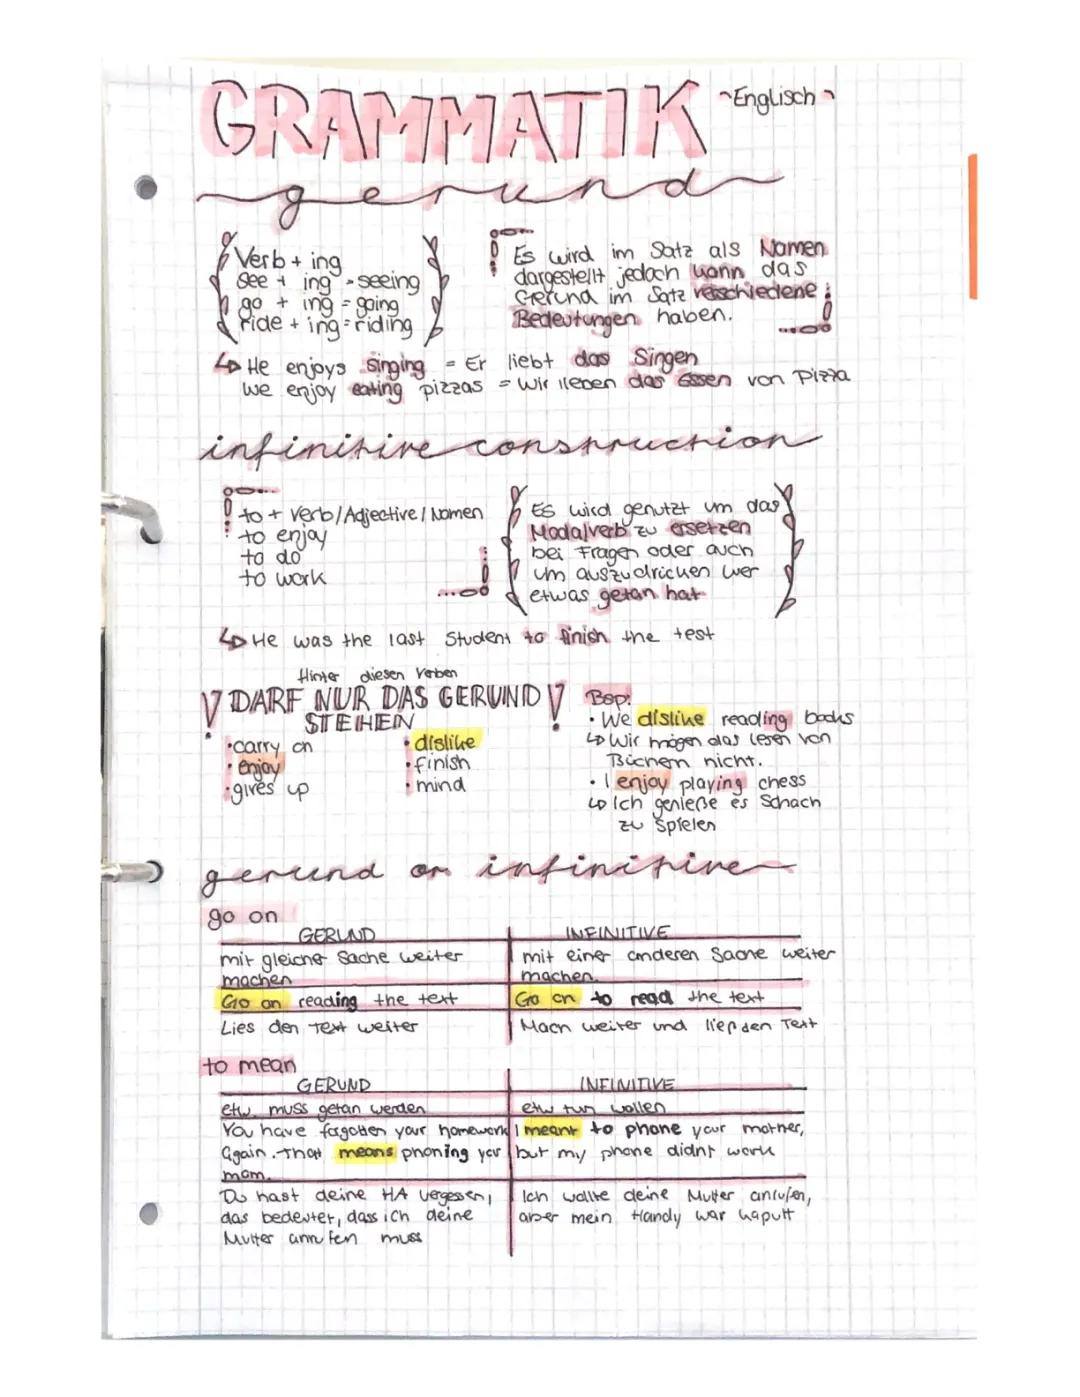 GRAMMATIK ~Englisch~
gerund
Verb + ing
see + ing - seeing
go + ing = going
ride + ing = riding
Es wird im Satz als Nomen
dargestellt jedoch kann das
Gerund im Satz verschiedene
Bedeutungen haben.
↳ He enjoys singing = Er liebt das Singen
we enjoy eating pizzas = Wir lieben das Essen von Pizza
infinitive construction
to + Verb/Adjective/Nomen
to enjoy
to do
to work
Es wird genutzt um das
Modalverb zu ersetzen
bei Fragen oder auch
um auszudrücken wer
etwas getan hat
↳ He was the last student to finish the test
Hinter diesen Verben
! DARF NUR DAS GERUND !
STEHEN
• carry on
• enjoy
• gives up
• dislike
• finish
• mind
Bsp:
• We dislike reading books
↳ Wir mögen das lesen von
Büchern nicht.
• I enjoy playing chess
↳ Ich genieße es Schach
zu spielen
gerund or infinitive
go on
GERUND INFINITIVE
mit gleicher Sache weiter
machen
mit einer anderen Sache weiter
machen.
Go on reading the text
Go on to read the text
Lies den Text weiter
Mach weiter und ließ den Text
to mean
GERUND INFINITIVE
etw. muss getan werden
etw tun wollen
You have forgotten your homework
again. That means phoning your
mom.
I meant to phone your mother,
but my phone didnt work
Du hast deine HA vergessen,
das bedeutet, dass ich deine
Mutter anrufen muss
Ich wollte deine Mutter anrufen,
aber mein Handy war kaputt